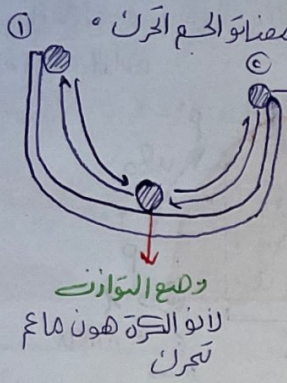 معناتو الجسم اتحرك .
①
②
وضع التوازن
لأنو الكرة هون ماعم
تتحرك